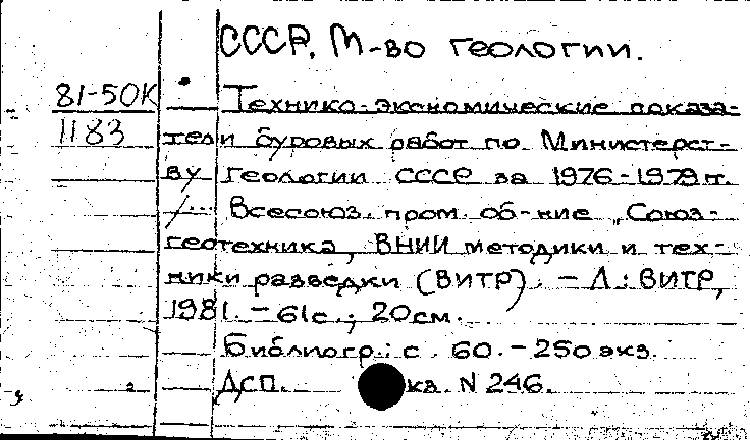 СССР. М-во геологии.
81-50К
1183
Технико-экономические показа-
тели буровых работ по Министерст-
ву геологии СССР за 1976-1979 гг.
/... Всесоюз. пром. об-ние „Союз-
геотехника, ВНИИ методики и тех-
ники разведки (ВИТР). — Л.: ВИТР,
1981. - 61с.; 20см.
Библиогр.: с. 60. - 250экз.
ДСП. кз. N 246.